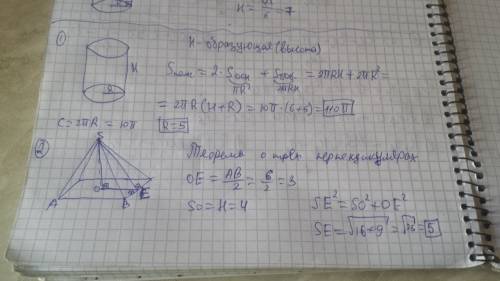 H = 7
①
H - образующая (высота)
H
Sполн = 2·Sосн + Sбок = 2πRH + 2πR² =
πR² 2πRH
= 2πR(H+R) = 10π·(6+5) = 110π
R
C = 2πR = 10π R=5
②
S
Теорема о трёх перпендикулярах
OE = AB/2 = 6/2 = 3
SO = H = 4
SE² = SO² + OE²
SE = √16+9 = √25 = 5
O
E
A
B